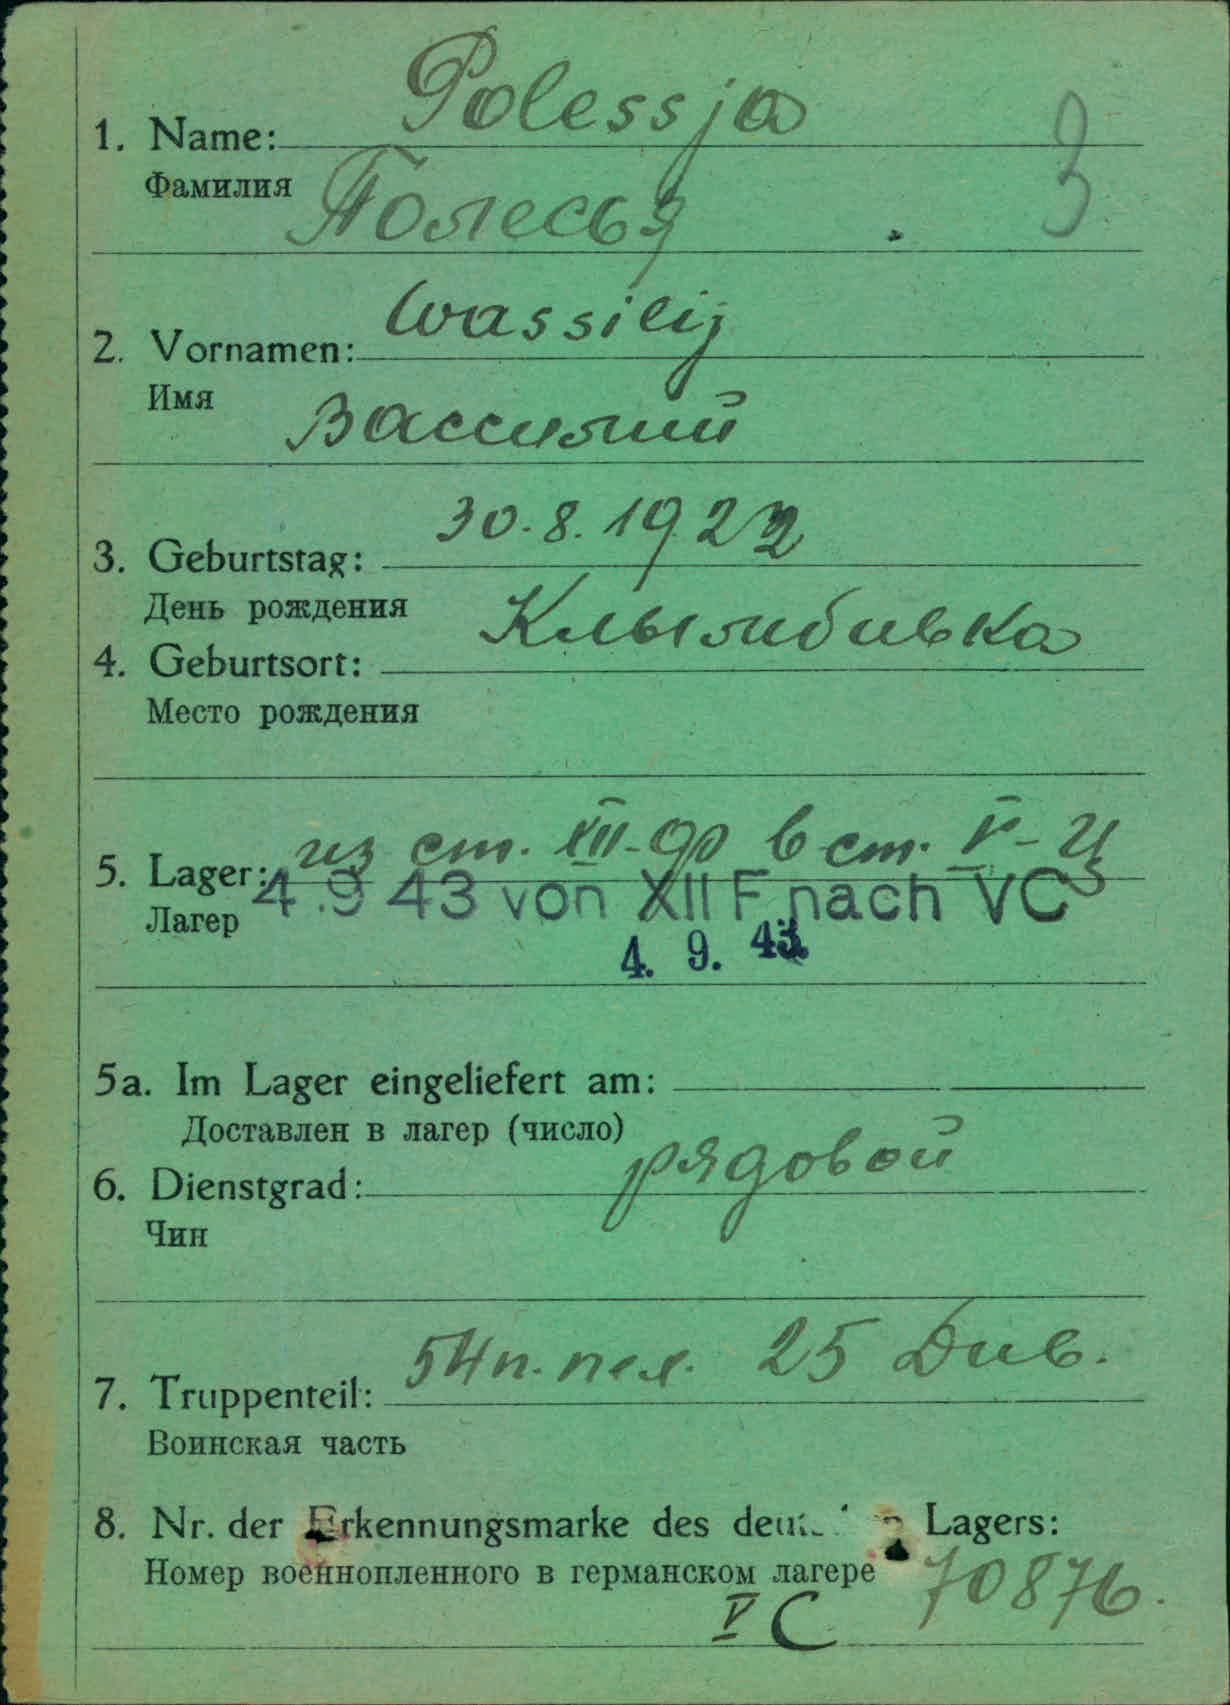 Polessja
1. Name:
3
Фамилия
Полесья
Wassilij
2. Vornamen:
Имя
Вассилий
30.8.1922
3. Geburtstag:
День рождения
4. Geburtsort:
Место рождения
из ст. XII-ф в ст. V-Ц
5. Lager:
4.9 43 von XII F nach VC
Лагер
4. 9. 43.
5a. Im Lager eingeliefert am:
Доставлен в лагер (число)
рядовой
6. Dienstgrad:
Чин
54 п. пех. 25 Див.
7. Truppenteil:
Воинская часть
8. Nr. der Erkennungsmarke des Lagers:
Номер военнопленного в германском лагере 70876.
V C